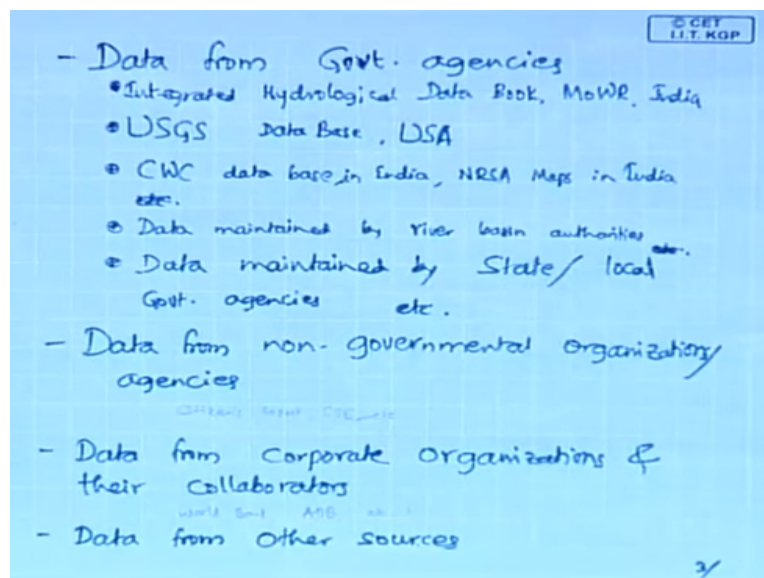 © CET
I.I.T. KGP
- Data from Govt. agencies
• Integrated Hydrological Data Book, MoWR, India
• USGS Data Base, USA
• CWC data base in India, NRSA Maps in India
etc.
• Data maintained by river basin authorities etc.
• Data maintained by State/ local
Govt. agencies etc.
- Data from non-governmental organizations/
agencies
Citizen's Report, CSE, etc
- Data from corporate organizations &
their collaborators
World Bank ADB
- Data from other sources
3/